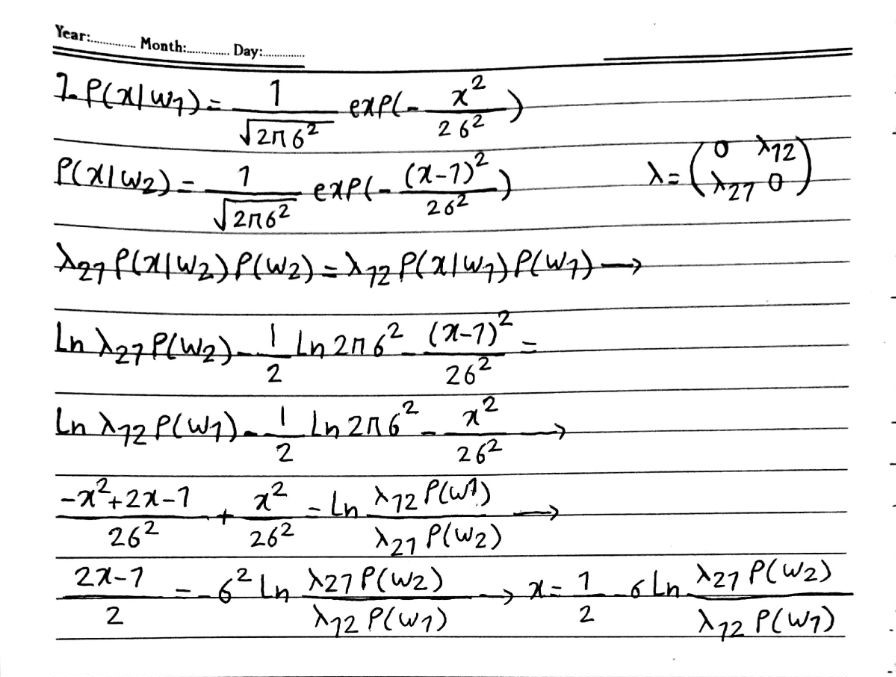 Year:............ Month:............ Day:............
1- P(x|w1) = 1/√(2πσ²) exp(- x²/2σ²)
P(x|w2) = 1/√(2πσ²) exp(- (x-1)²/2σ²) λ = (0 λ12 / λ21 0)
λ21 P(x|w2) P(w2) = λ12 P(x|w1) P(w1) →
Ln λ21 P(w2) - 1/2 Ln 2πσ² - (x-1)²/2σ² =
Ln λ12 P(w1) - 1/2 Ln 2πσ² - x²/2σ² →
(-x²+2x-1)/2σ² + x²/2σ² = Ln λ12 P(w1)/λ21 P(w2) →
(2x-1)/2 = -σ² Ln λ21 P(w2)/λ12 P(w1) → x = 1/2 - σ Ln λ21 P(w2)/λ12 P(w1)